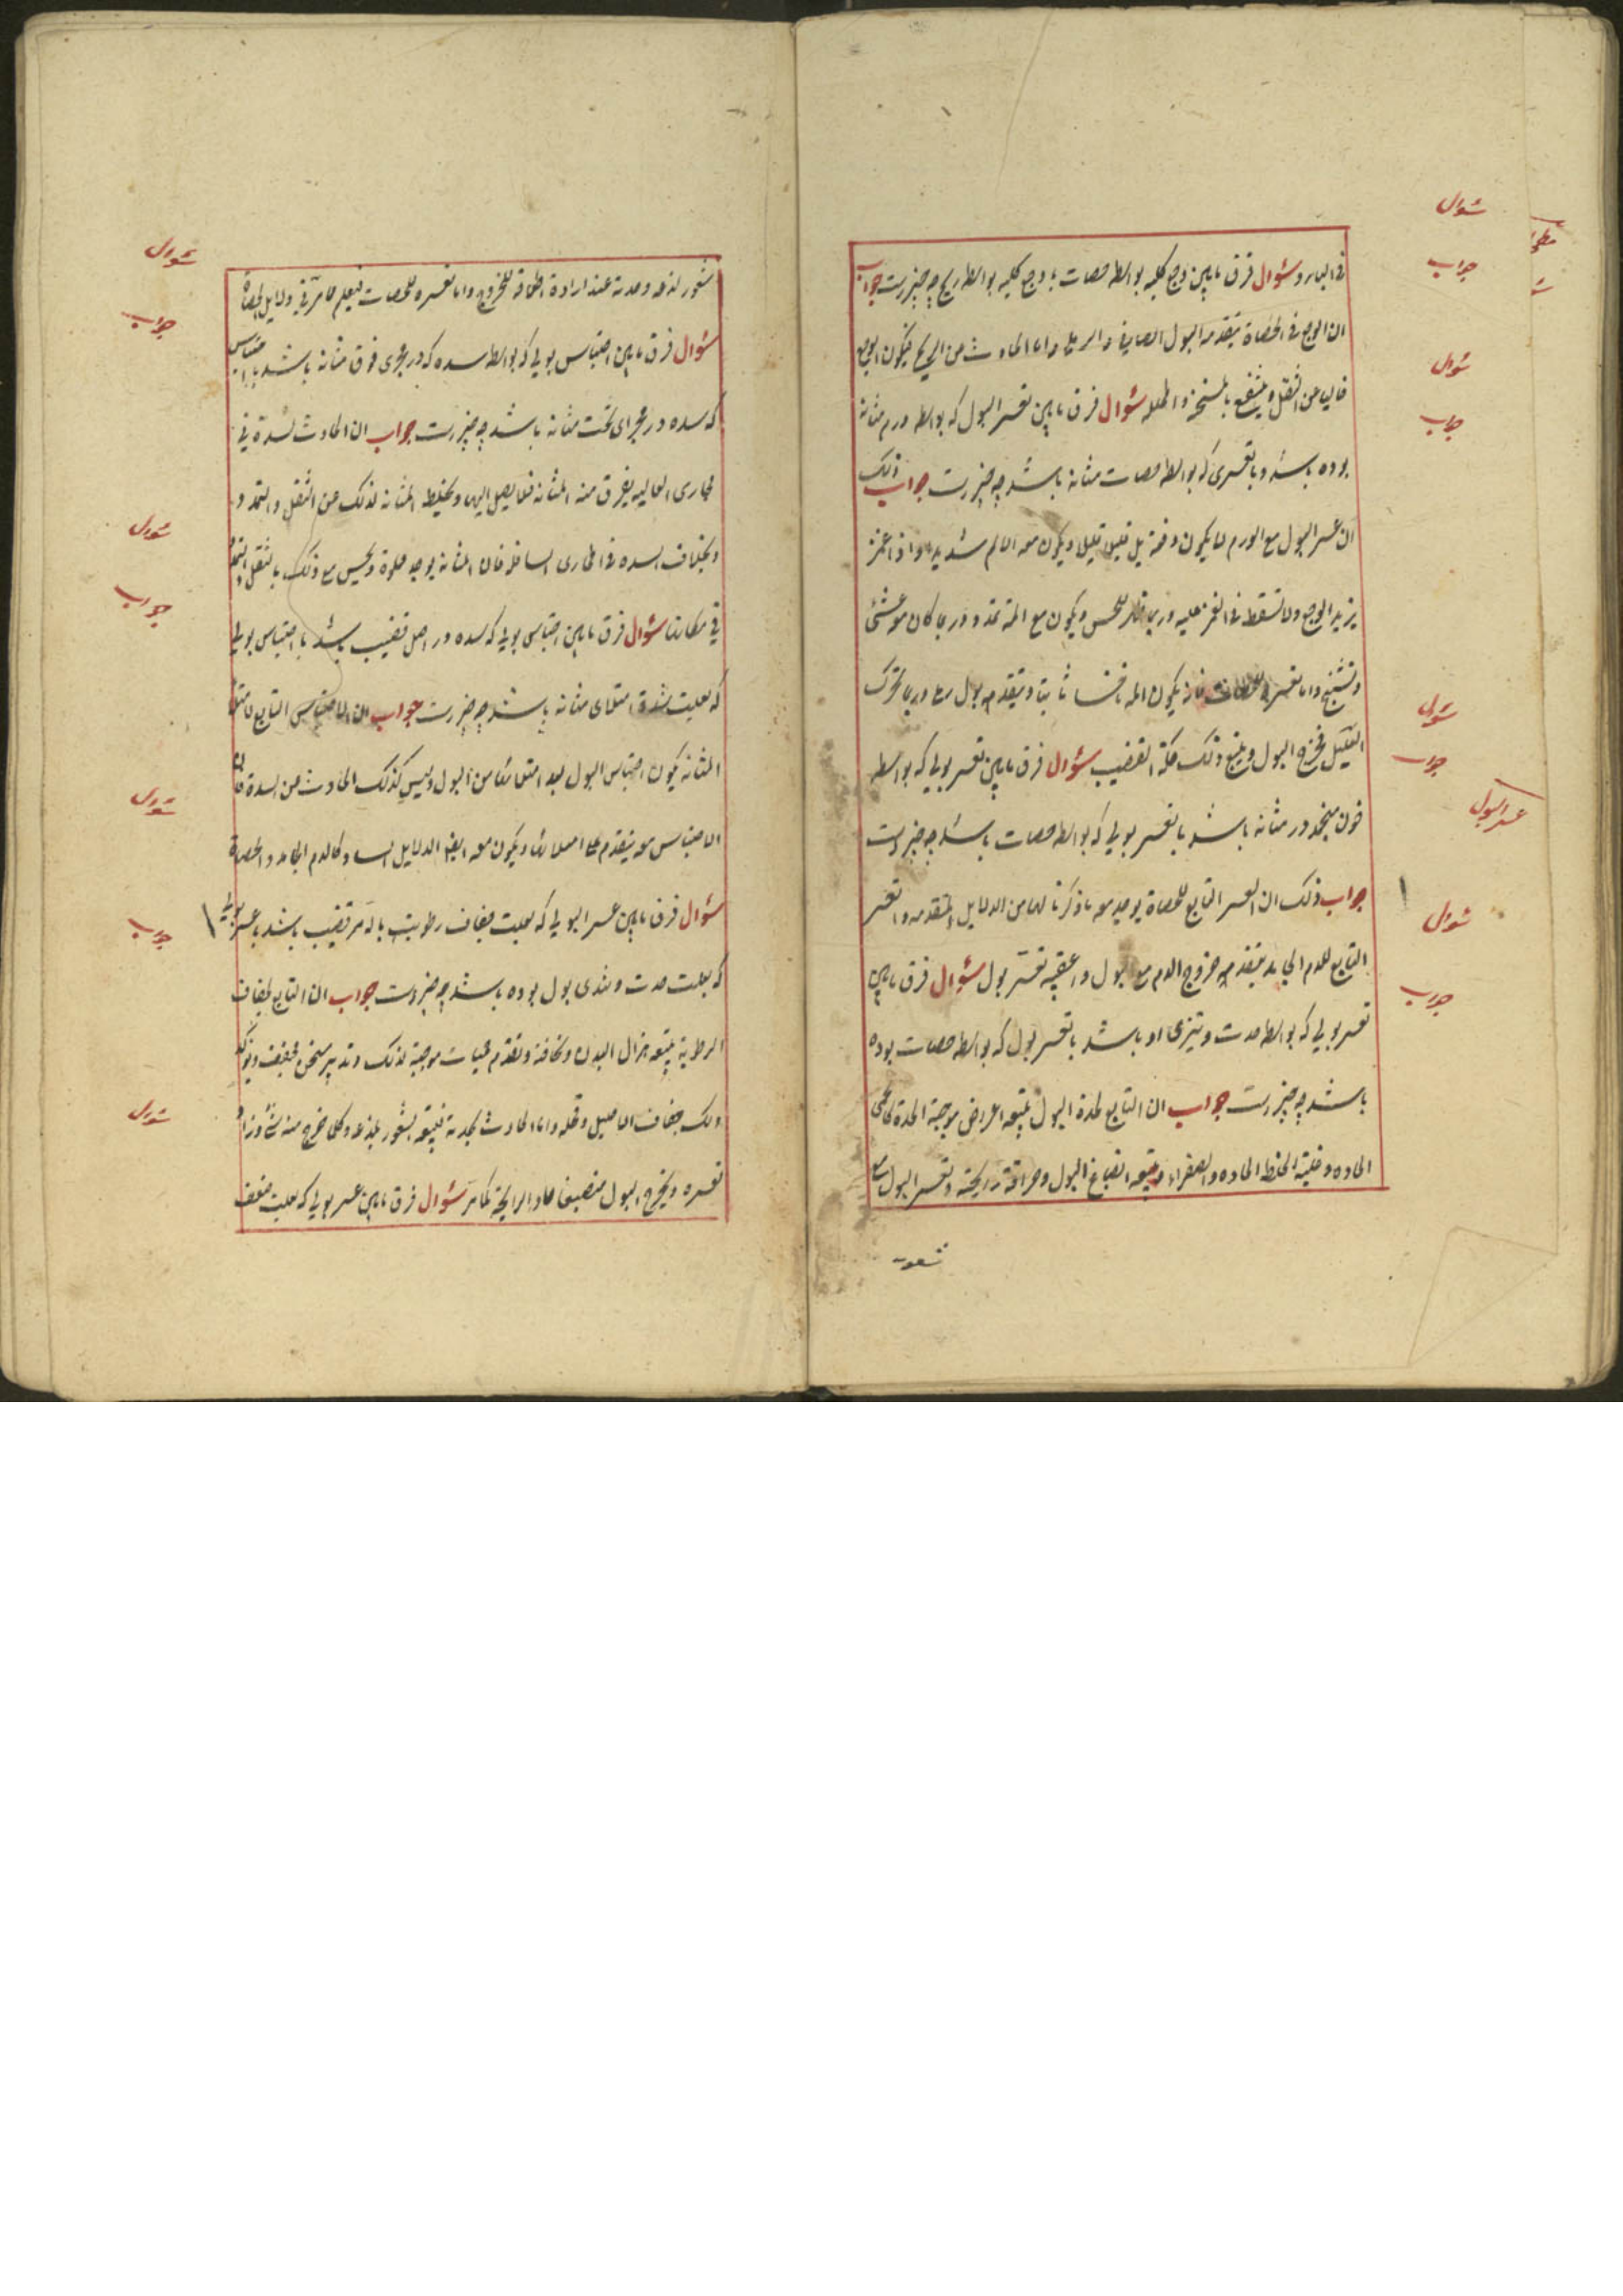 فی البارد سؤال فرق مابین وجع کلیه بواسطه حصات با وجع کلیه بواسطه ریح چه چیز است جواب
ان الوجع فی الحصاة یتقدمه البول الصافی و الرملی و اما الحادث من الریح فیکون الوجع
خالیا عن الثقل و ینتفع بالمسخنه و المحلله سؤال فرق مابین تعسر البول که بواسطه ورم مثانه
بوده باشد و با تعسری که بواسطه حصات مثانه باشد چه چیز است جواب ذلک
ان عسر البول مع الورم لا یکون دفعة بل قلیلا قلیلا و یکون معه الالم شدیدا و اذا غمز
یزید الوجع و لا تسقط فی الغمز علیه و ربما ظهر للحس و یکون مع المه تمدد و ربما کان معه غشی
و تشنج و اما تعسره للحصات فانه یکون المه ناخسا ثابتا و یتقدمه بول رملی و ربما تحرک
العلیل فخرج البول و یتبع ذلک حکة القضیب سؤال فرق مابین تعسر بولی که بواسطه
خون منجمد در مثانه باشد با تعسر بولی که بواسطه حصات باشد چه چیز است
جواب ذلک ان العسر التابع للحصاة یوجد معه ما ذکرنا لها من الدلایل المتقدمه و العسر
التابع للدم الجامد یتقدمه خروج الدم مع البول و اعقبه تعسر بول سؤال فرق مابین
تعسر بولی که بواسطه حدت و تیزی او باشد با تعسر بول که بواسطه حصات بوده
باشد چه چیز است جواب ان التابع لحدة البول یتبعه اعراض موجبة الحدة کالحمی
الحاده و غلبة الخلط الحاده و الصفراء و یتبعه انصباغ البول و حراقته و رایحته و تعسر البول مع
شعور
سؤال
جواب
سؤال
جواب
سؤال
جواب
عسر البول
سؤال
جواب
شعور لذعه و حدته عند ارادة اطلاقه للخروج و اما تعسره للحصات فیعلم مما مر فی دلایل الحصاة
سؤال فرق مابین احتباس بولی که بواسطه سده که در مجری فوق مثانه باشد با احتباس
که سده در مجرای تحت مثانه باشد چه چیز است جواب ان الحادث لسدة فی
مجاری العالیه یفرق منه المثانه فلا یصل الیها و یختلط المثانه لذلک عن الثقل و التمدد
و بخلاف السده فی المجاری السافله فان المثانه یوجد مملوة و یحس مع ذلک بالثقل و التمدد
فی مکانها سؤال فرق مابین احتباس بولی که سده در اصل قضیب باشد با احتباس بولی
که بعلت شدة امتلای مثانه باشد چه چیز است جواب ان الاحتباس التابع لامتلاء
المثانه یکون احتباس البول بعد امتلائها من البول و لیس کذلک الحادث من السدة فان
الاحتباس معه یتقدم علی امتلائها و یکون معه ایضا الدلایل السده کالدم الجامد و الحصاة
سؤال فرق مابین عسر البولی که بعلت جفاف رطوبت باله مر قضیب باشد با عسر بولی
که بعلت حدت و تندی بول بوده باشد چه چیز است جواب ان التابع لجفاف
الرطوبة یتبعه هزال البدن و نحافته و تقدم حمیات موجبة لذلک و تدبیر مسخن مجفف و یؤکد
ذلک جفاف الاحلیل و قحله و اما الحادث لحدته فیتبعه شعور بلذعه و کلما خرج منه شئ زاد
تعسره و یخرج البول منصبغا حاد الرایحة کما مر سؤال فرق مابین عسر بولی که بعلت ضعف
سؤال
جواب
سؤال
جواب
سؤال
جواب
سؤال